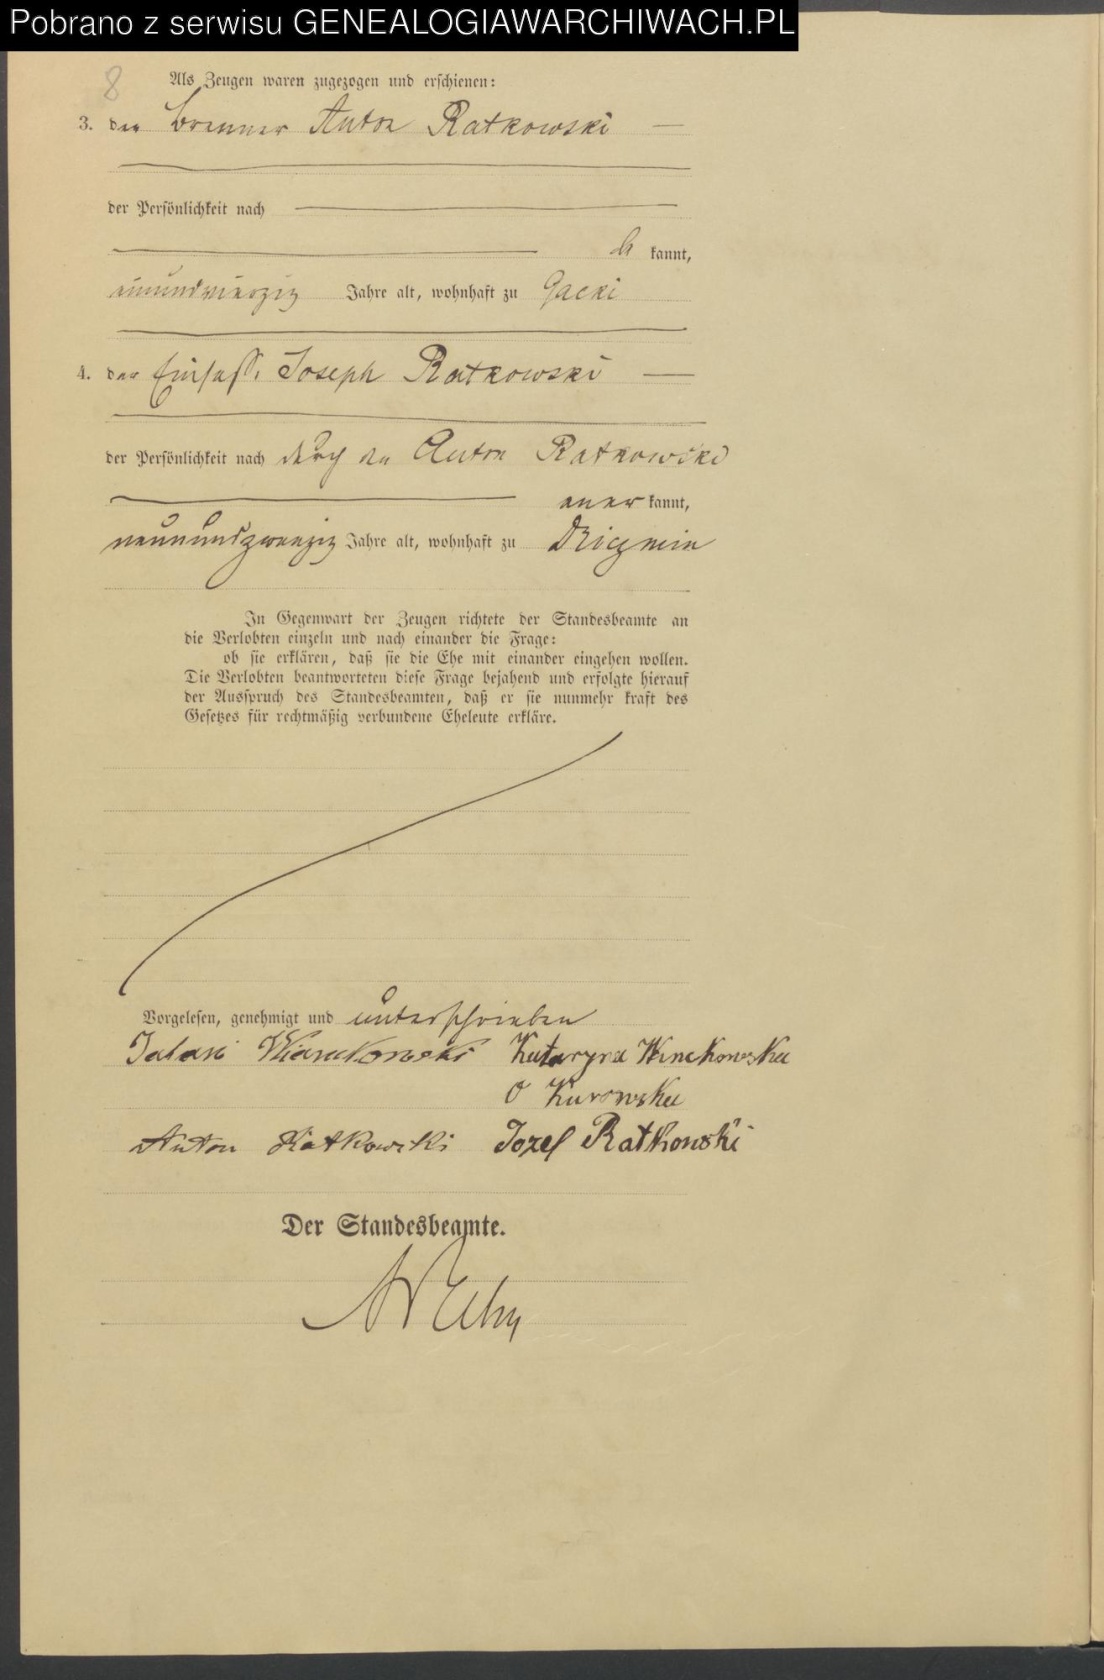 Pobrano z serwisu GENEALOGIAWARCHIWACH.PL
8
Als Zeugen waren zugezogen und erschienen:
3. der Brenner Anton Ratkowski
der Persönlichkeit nach
be kannt,
Jahre alt, wohnhaft zu Gacki
4. der Einsasse Joseph Ratkowski
der Persönlichkeit nach durch den Anton Ratkowski
aner kannt,
neunundzwanzig Jahre alt, wohnhaft zu Driczmin
In Gegenwart der Zeugen richtete der Standesbeamte an
die Verlobten einzeln und nach einander die Frage:
ob sie erklären, daß sie die Ehe mit einander eingehen wollen.
Die Verlobten beantworteten diese Frage bejahend und erfolgte hierauf
der Ausspruch des Standesbeamten, daß er sie nunmehr kraft des
Gesetzes für rechtmäßig verbundene Eheleute erkläre.
Vorgelesen, genehmigt und unterschrieben
Katarzyna
Kurowska
Anton Ratkowski Jozef Ratkowski
Der Standesbeamte.